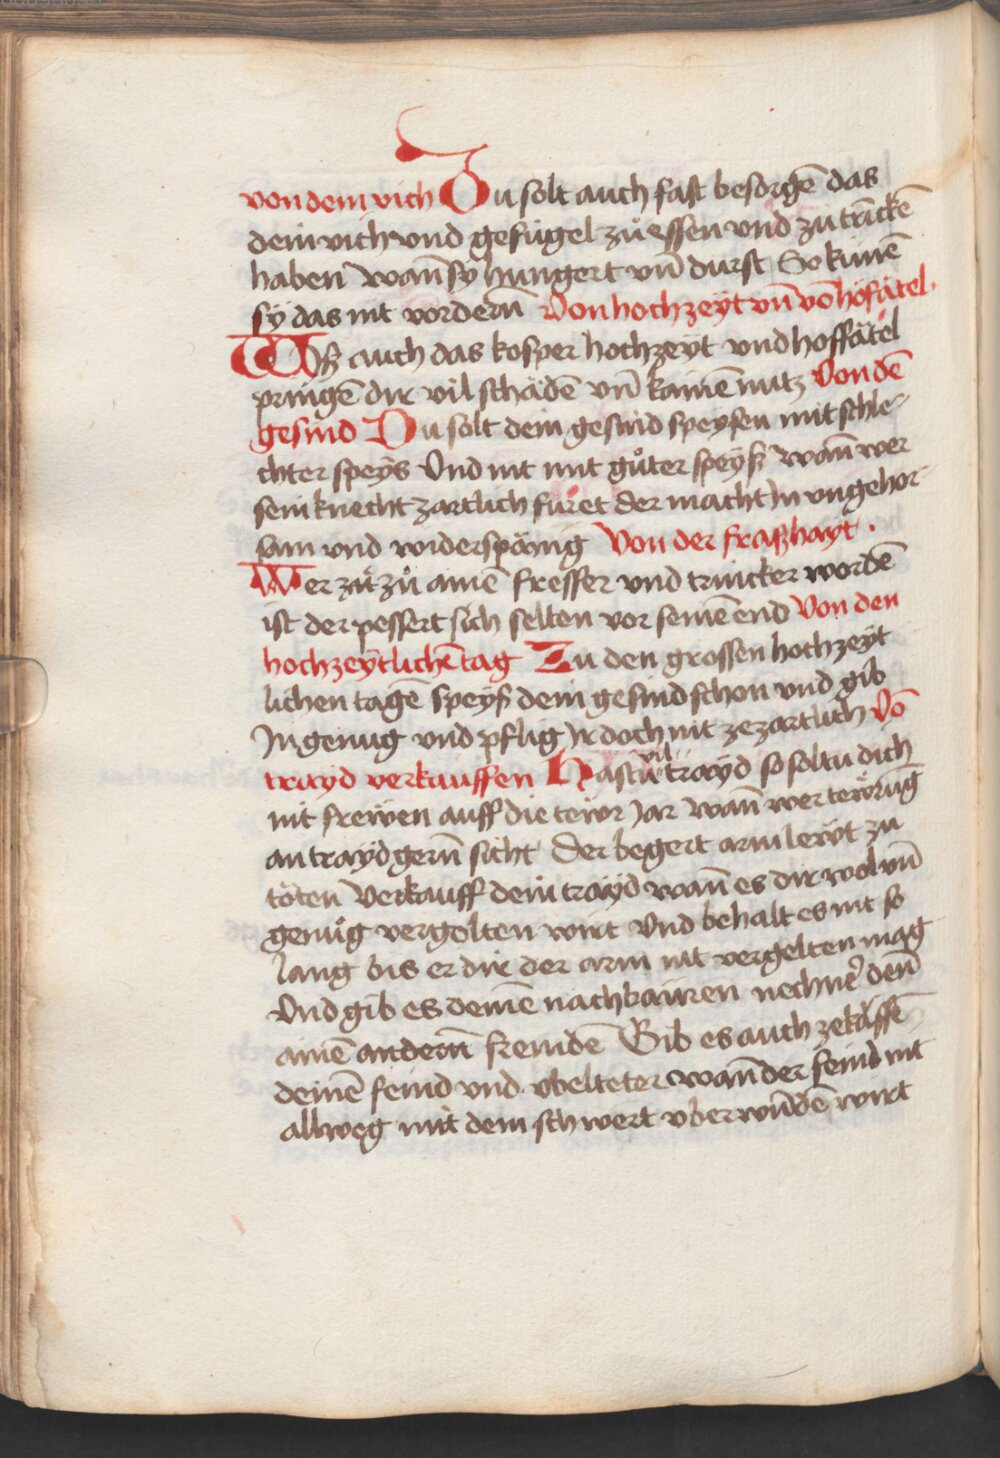 von dem vich Du solt auch fast besorgē das
dein vich vnd gefügel zuͦ essen vnd zu trīckē
haben wañ sy hungert vñ durst So künē
sÿ das nit vordern̄ Von hochzeyt vñ võ hôfātel.
Wiß auch das kosper hochzeyt vnd hoffātel
pringē dir vil schādē vñ kainē nutz Von dē
gesind Du solt dein gesind speysen mit schle-
chter speys Vnd nit mit guͦter speyß wañ wer
sein knecht zartlich fuͤret der macht Jn vngehor
sam vnd widerspānig Von der fraßhayt.
Wer zuͦ ainē fresser vnd trincker wordē
ist der pessert sich selten vor seinē end Von den
hochzeÿtlichē tag Zu den grossen hochzeÿt
lichen tagē speyß dein gesind schon vnd gib
Jn genug vnd pflig Jr doch nit ze zartlich Võ
trayd verkauffen Hastu vil trayd so soltu dich
nit frewen auff die tewr Jar wañ wer tewrūg
an trayd gern̄ sicht Der begert arm lewt zu
töten Verkauff dein trayd wañ es dir wol vñ
genuͦg vergolten wirt Vnd behalt es nit so
lang bis er dir der arm nit vergelten mag
Vnd gib es deinē nachbauren nechner̄ den̄
ainē andern̄ fremdē Gib es auch ze kāffē
deinē feind vnd vbelteter wañ der feind nit
allweg mit dem schwert vberwūdē wirt